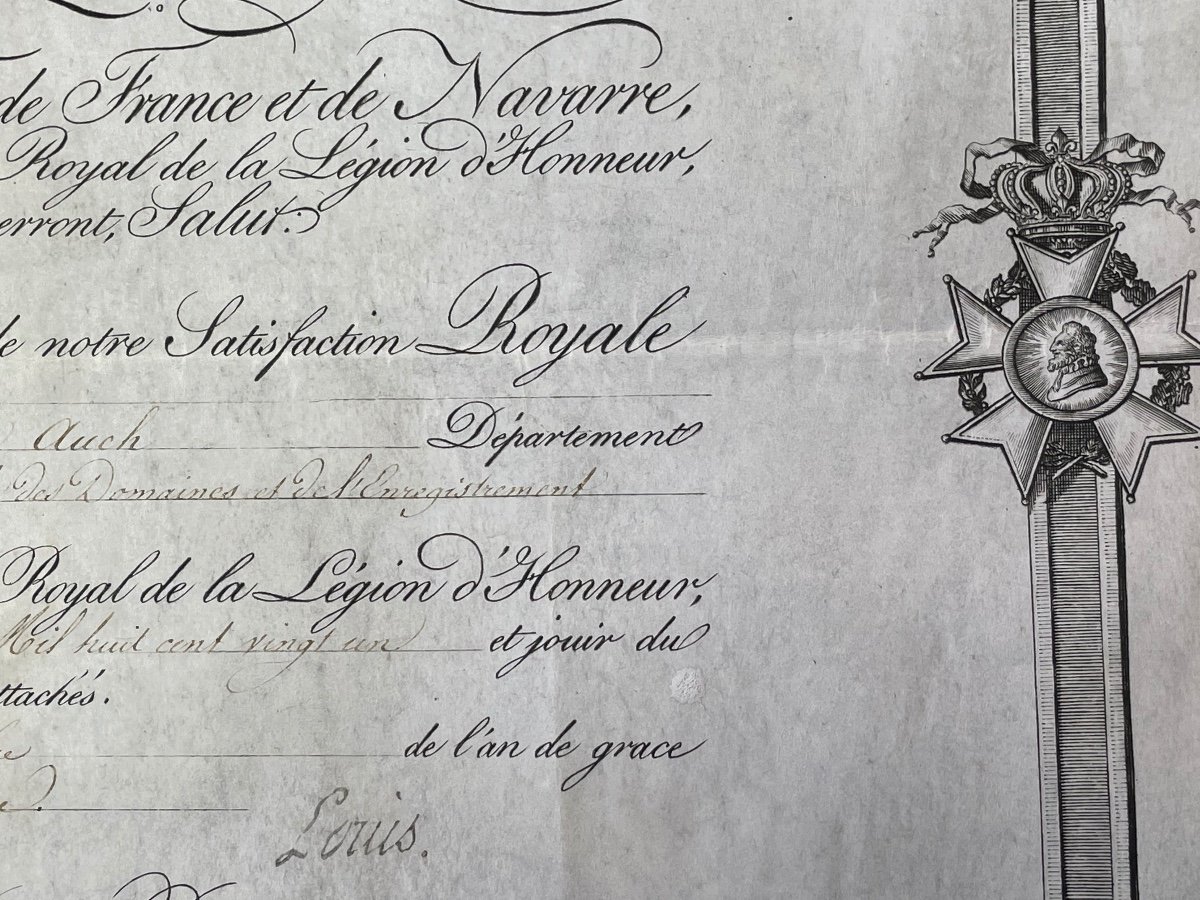 de France et de Navarre,
Royal de la Légion d'Honneur,
erront, Salut:
de notre Satisfaction Royale
Auch Département
des Domaines et de l'Enregistrement
Royal de la Légion d'Honneur,
Mil huit cent vingt un et jouir du
ttachés.
de l'an de grace
Louis.